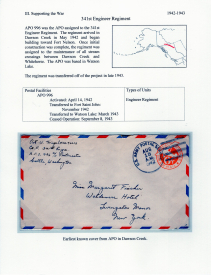 III. Supporting the War 1942-1943
341st Engineer Regiment
APO 996 was the APO assigned to the 341st
Engineer Regiment. The regiment arrived in
Dawson Creek in May 1942 and began
building toward Fort Nelson. Once initial
construction was complete, the regiment was
assigned to the maintenance of all stream
crossings between Dawson Creek and
Whitehorse. The APO was based in Watson
Lake.
The regiment was transferred off of the project in late 1943.
Postal Facilities
APO 996
Activated: April 14, 1942
Transferred to Fort Saint John:
November 1942
Transferred to Watson Lake: March 1943
Ceased Operation: September 8, 1943
Types of Units
Engineer Regiment
Seattle, Washington
Miss Margaret
Hotel
New York
Earliest known cover from APO in Dawson Creek.